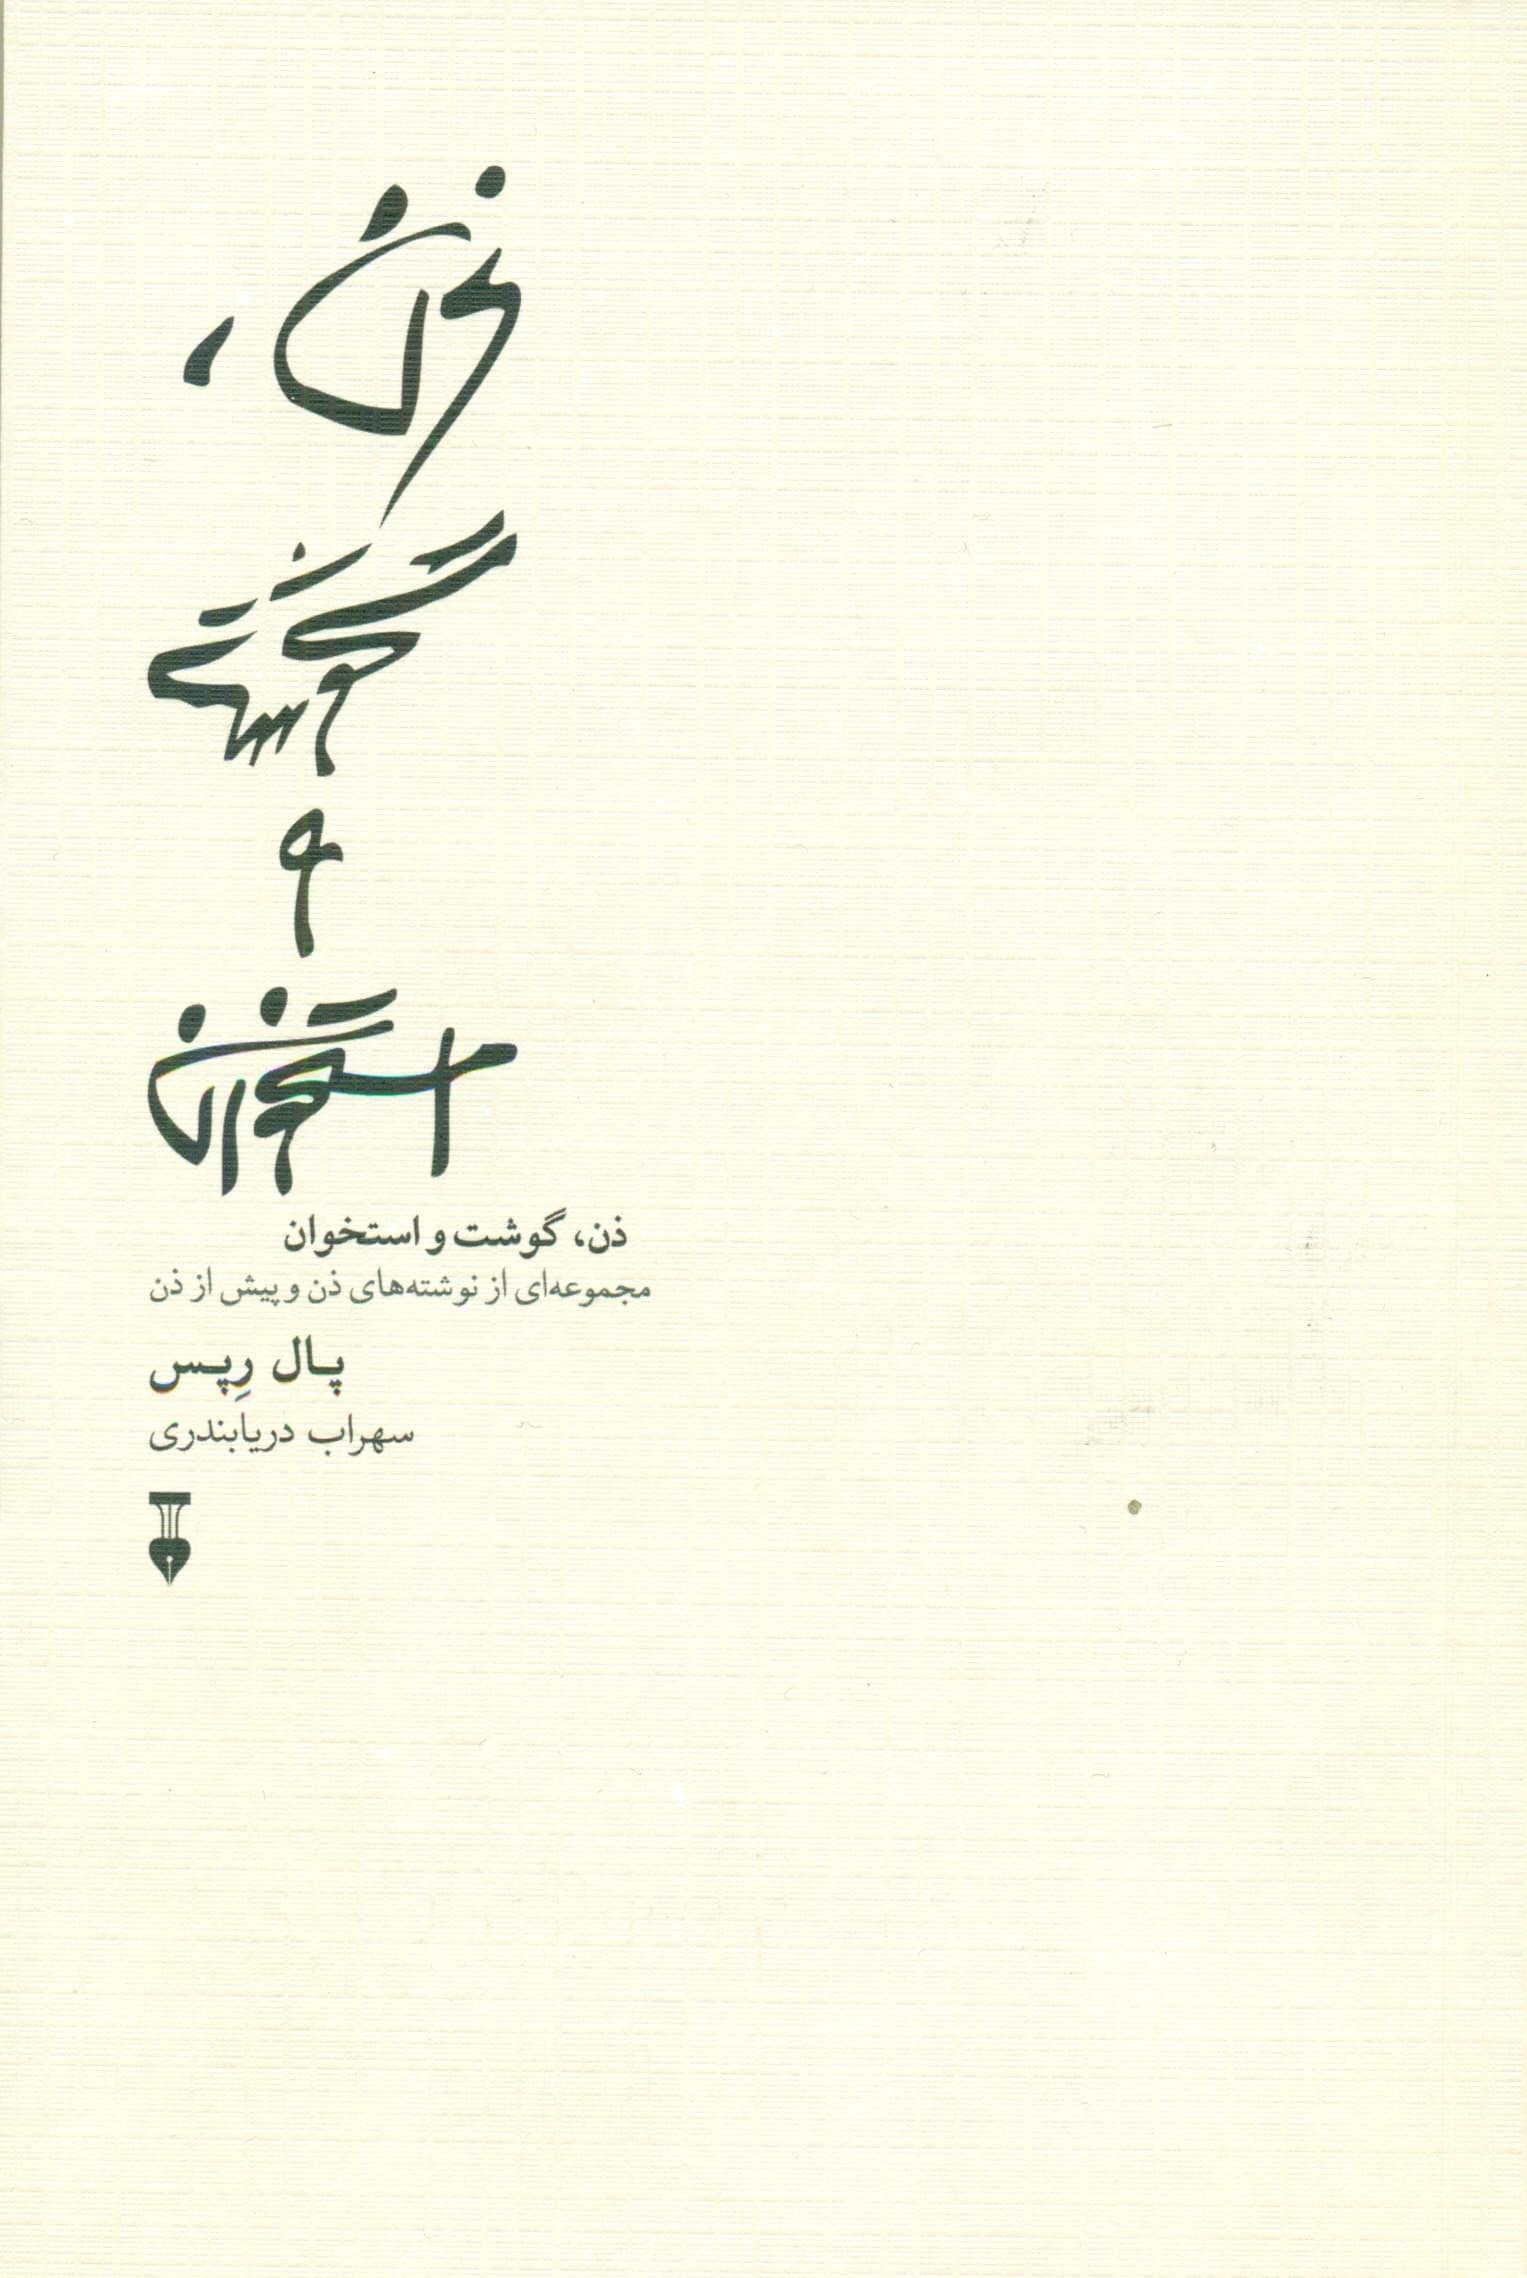 ذن،
گوشت
و
استخوان
ذن، گوشت و استخوان
مجموعه‌ای از نوشته‌های ذن و پیش از ذن
پال رِپس
سهراب دریابندری